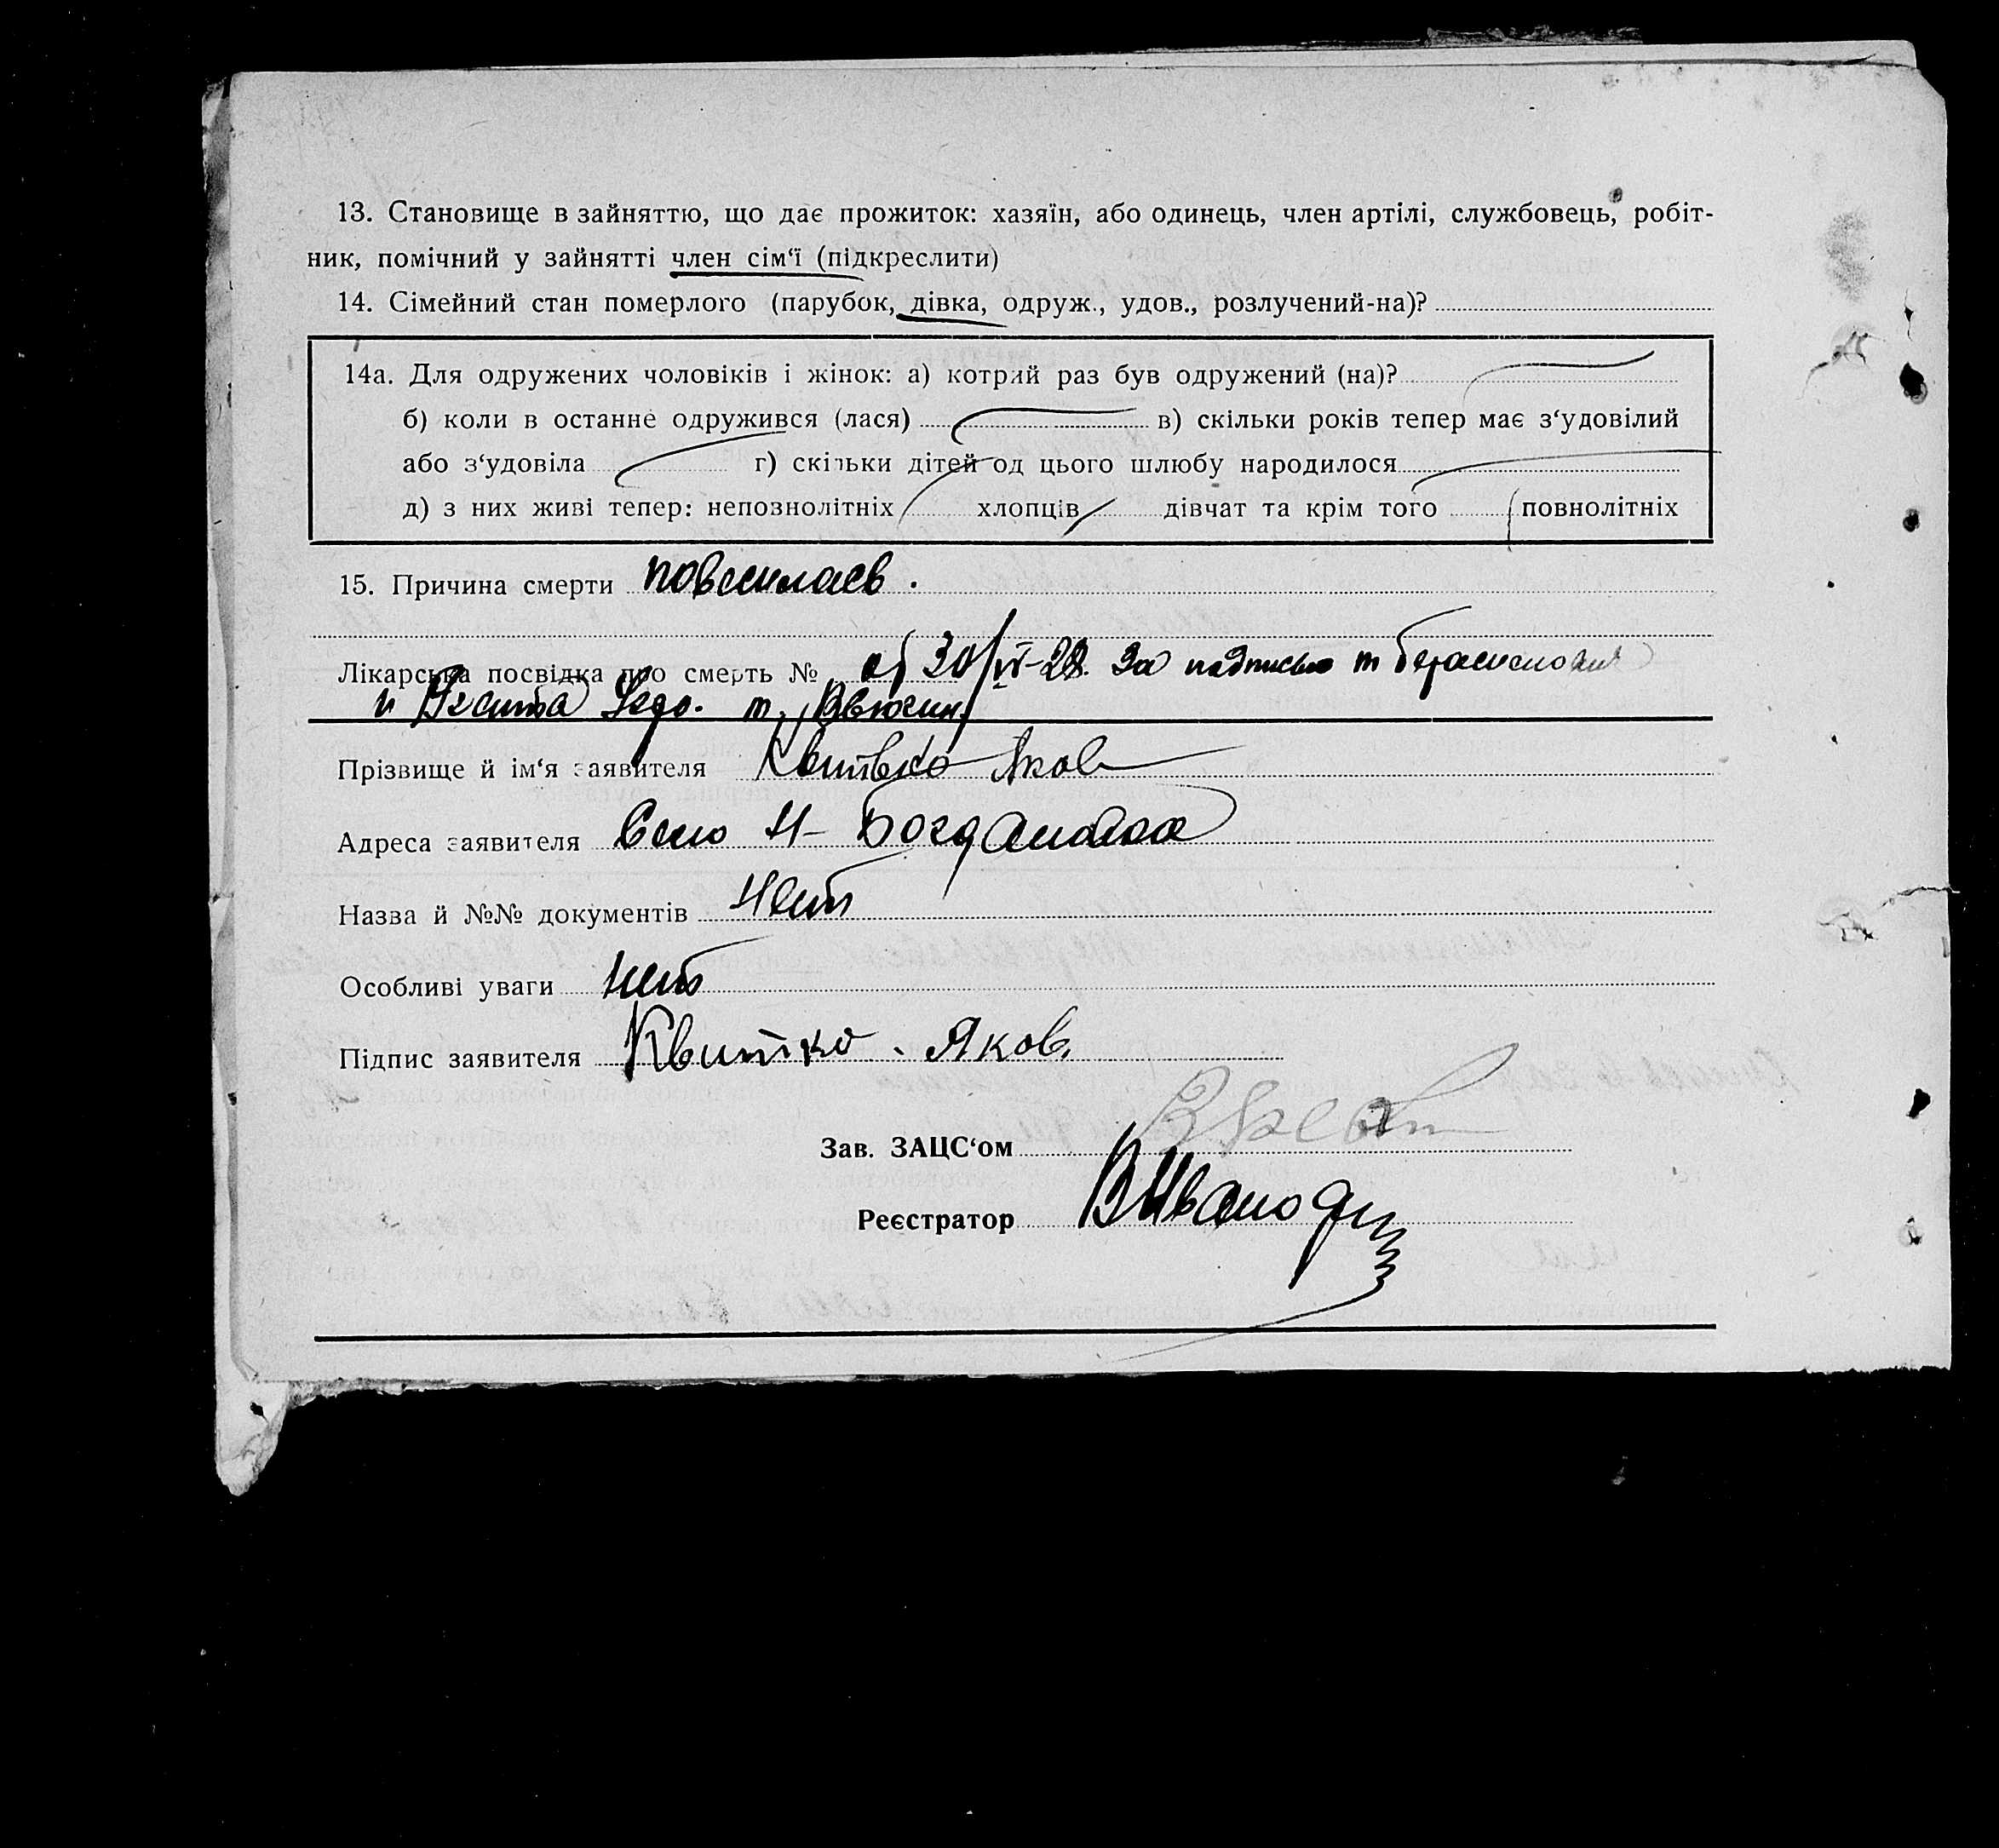 13. Становище в зайняттю, що дає прожиток: хазяїн, або одинець, член артілі, службовець, робіт-
ник, помічний у зайнятті член сім‘ї (підкреслити)
14. Сімейний стан померлого (парубок, дівка, одруж., удов., розлучений-на)?
14а. Для одружених чоловіків і жінок: а) котрий раз був одружений (на)?
б) коли в останне одружився (лася) в) скільки років тепер має з‘удовілий
або з‘удовіла г) скільки дітей од цього шлюбу народилося
д) з них живі тепер: непознолітніх хлопців дівчат та крім того повнолітніх
15. Причина смерти повесилась.
Лікарська посвідка про смерть № от 30/VI-28. За подписью т
и т.
Прізвище й ім‘я заявителя Квитко Яков
Адреса заявителя Село Н-Богдановка
Назва й №№ документів Нет
Особливі уваги нет
Підпис заявителя Квитко. Яков.
Зав. ЗАЦС‘ом
Реєстратор